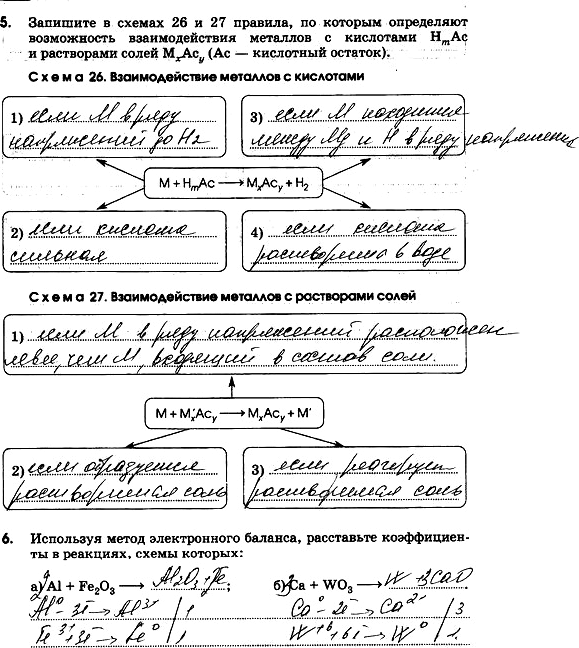 5. Запишите в схемах 26 и 27 правила, по которым определяют
возможность взаимодействия металлов с кислотами HₘAc
и растворами солей MₓAcᵧ (Ac — кислотный остаток).
Схема 26. Взаимодействие металлов с кислотами
1) если М в ряду
напряжений до H2
3) если М находится
между Mg и H в ряду напряжения
M + HₘAc ⟶ MₓAcᵧ + H₂
2) если кислота
сильная
4) если кислота
растворима в воде
Схема 27. Взаимодействие металлов с растворами солей
1) если М в ряду напряжений расположен
левее, чем М, входящий в состав соли.
M + M'ₓAcᵧ ⟶ MₓAcᵧ + M'
2) если образуется
растворимая соль
3) если реагирует
растворимая соль
6. Используя метод электронного баланса, расставьте коэффициен-
ты в реакциях, схемы которых:
а) 2Al + Fe₂O₃ ⟶ Al₂O₃ + Fe;
б) 3Ca + WO₃ ⟶ W + 3CaO
Al⁰ - 3ē → Al³⁺ / 1
Ca⁰ - 2ē → Ca²⁺ / 3
Fe³⁺ + 3ē → Fe⁰ / 1
W⁺⁶ + 6ē → W⁰ / 1.